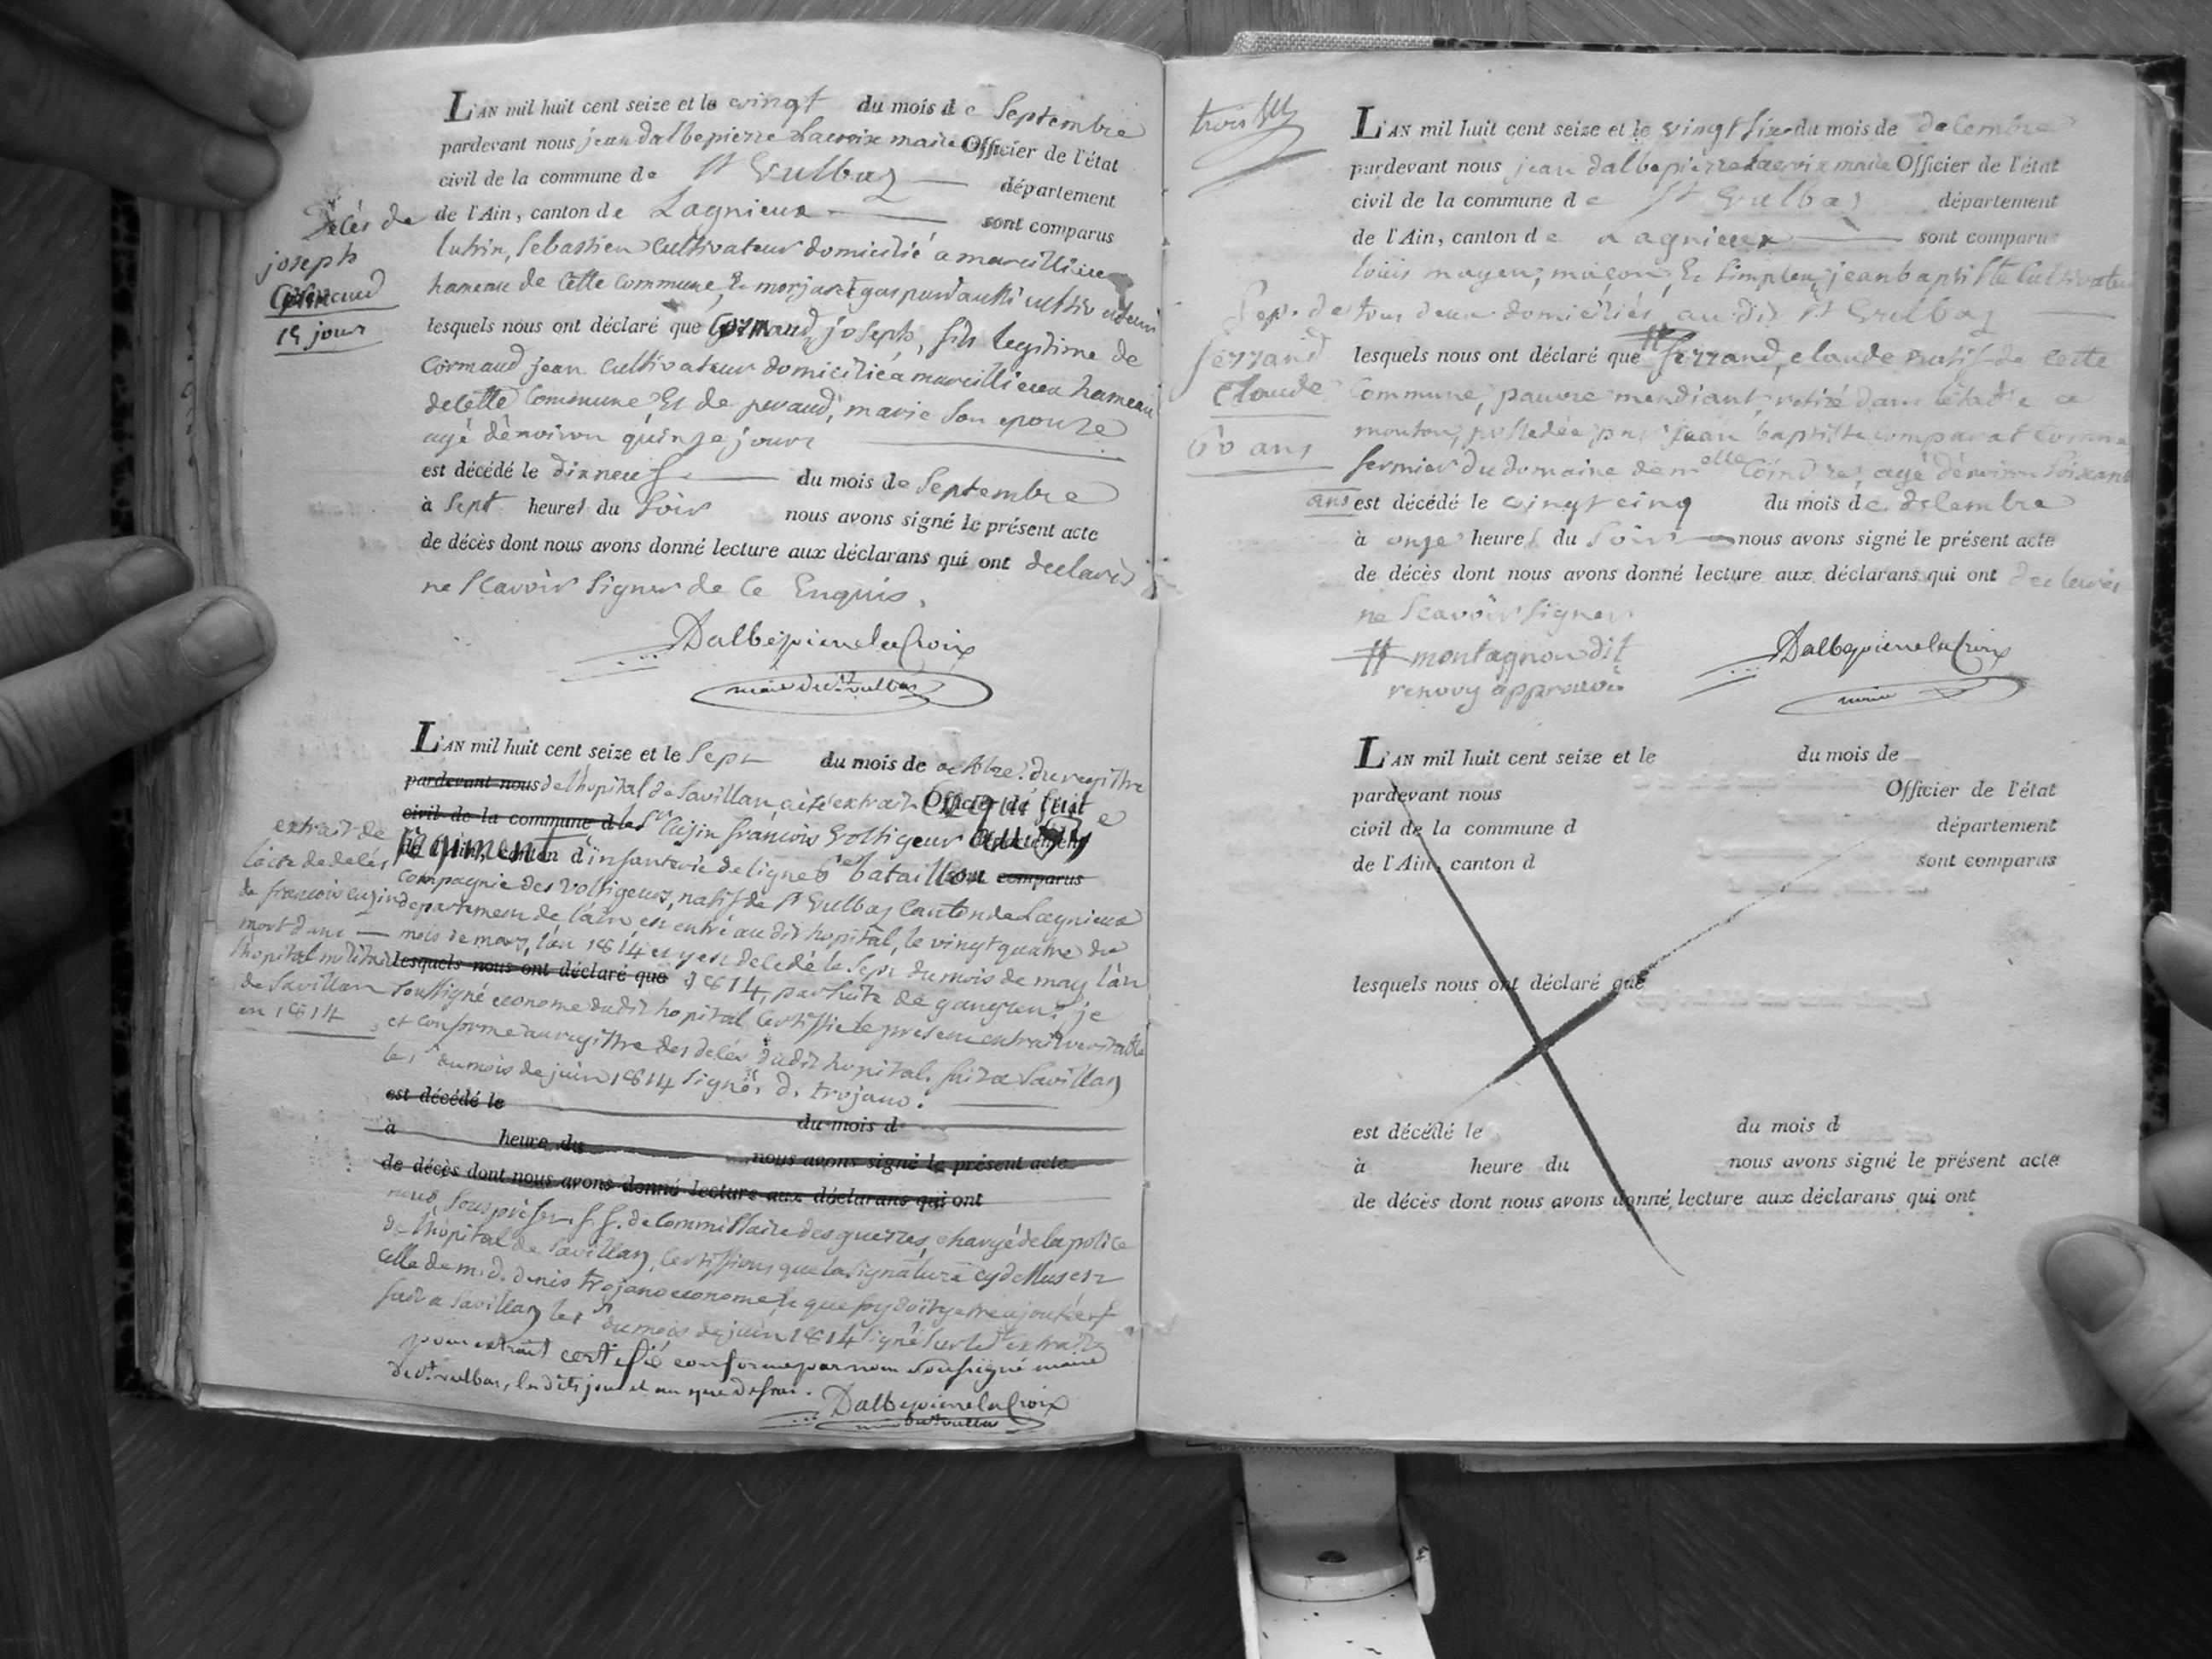 L'AN mil huit cent seize et le vingt du mois de Septembre
pardevant nous jean dalbepierre Lacroix maire Officier de l'état
civil de la commune de St Vulbas département
de l'Ain, canton de Lagnieux sont comparus
lutrin, Sebastien cultivateur domicilié a marcillieux
hameau de cette commune, & morjaret gaspard aussi cultivateur
lesquels nous ont déclaré que Cormaud, joseph, fils legitime de
Cormaud jean cultivateur domicilié a marcillieux hameau
de cette Commune Et de peraud, marie Son epouze
agé d'environ quinze jours
est décédé le dixneuf du mois de Septembre
à Sept heures du Soir nous avons signé le présent acte
de décès dont nous avons donné lecture aux déclarans qui ont declarés
ne Scavoir Signer de ce Enquis.
Dalbepierrelacroix
maire de St vulbas
Décés de
joseph
Cormaud
15 jours
L'AN mil huit cent seize et le Sept du mois de octobre. du registre
pardevant nous de l'hopital de Savillan, a été extrait Ce qui suit Officier de l'état
civil de la commune d le Sr Cuzin françois Voltigeur au département
de l'Ain, canton d regiment d'infanterie de ligne 6e bataillon comparus
compagnie des Voltigeurs, natif de St Vulbas Canton de Lagnieux
departement de l'ain, est entré au dit hopital, le vingt quatre du
mois de mars, l'an 1814 et y est decedé le Sept du mois de may l'an
lesquels nous ont déclaré que 1814, par suite de gangrene. je
soussigné econome du dit hopital Certiffie le present extrait veritable
et conforme au registre des decés du dit hopital. fait a Savillan
le 1er du mois de juin 1814 Signé, d. trojano.
extrait de
l'acte de decés
de françois cuzin
mort dans
l'hopital militaire
de Savillan
en 1814
est décédé le du mois d
à heure du nous avons signé le présent acte
de décès dont nous avons donné lecture aux déclarans qui ont
nous Souspréfet f.f. de Commissaire des guerres, chargé de la police
de l'hôpital de Savillan, Certiffions que la signature cy dessus est
celle de m. d. denis trojano econome & que foy doit y etre ajoutée
fait a Savillan le 1er du mois de juin 1814 signé Sur ledt extrait
pour extrait certifié conforme par nous soussigné maire
de St vulbas, les dits jour et an que dessus.
Dalbepierrelacroix
maire de St vulbas
L'AN mil huit cent seize et le vingt six du mois de decembre
pardevant nous jean dalbepierre Lacroix maire Officier de l'état
civil de la commune de St Vulbas département
de l'Ain, canton de Lagnieux sont comparus
louis mayeu, maçon, Et Simplex, jean baptiste Cultivateur
tous deux domiciliés au dit St Vulbas
lesquels nous ont déclaré que # ferrand, claude natif de cette
Commune, pauvre mendiant, retiré dans l'etable a
mouton, possedée par jean baptiste comparat comme
fermier du domaine de melle Coindre, agé d'environ Soixante
ans est décédé le vingt cinq du mois de decembre
à onze heures du Soir nous avons signé le présent acte
de décès dont nous avons donné lecture aux déclarans qui ont declarés
ne Scavoir Signer.
# montagnon dit
renovy approuvé
Dalbepierrelacroix
maire
ferrand
claude
60 ans
L'AN mil huit cent seize et le du mois de
pardevant nous Officier de l'état
civil de la commune d département
de l'Ain, canton d sont comparus
lesquels nous ont déclaré que
est décédé le du mois d
à heure du nous avons signé le présent acte
de décès dont nous avons donné lecture aux déclarans qui ont